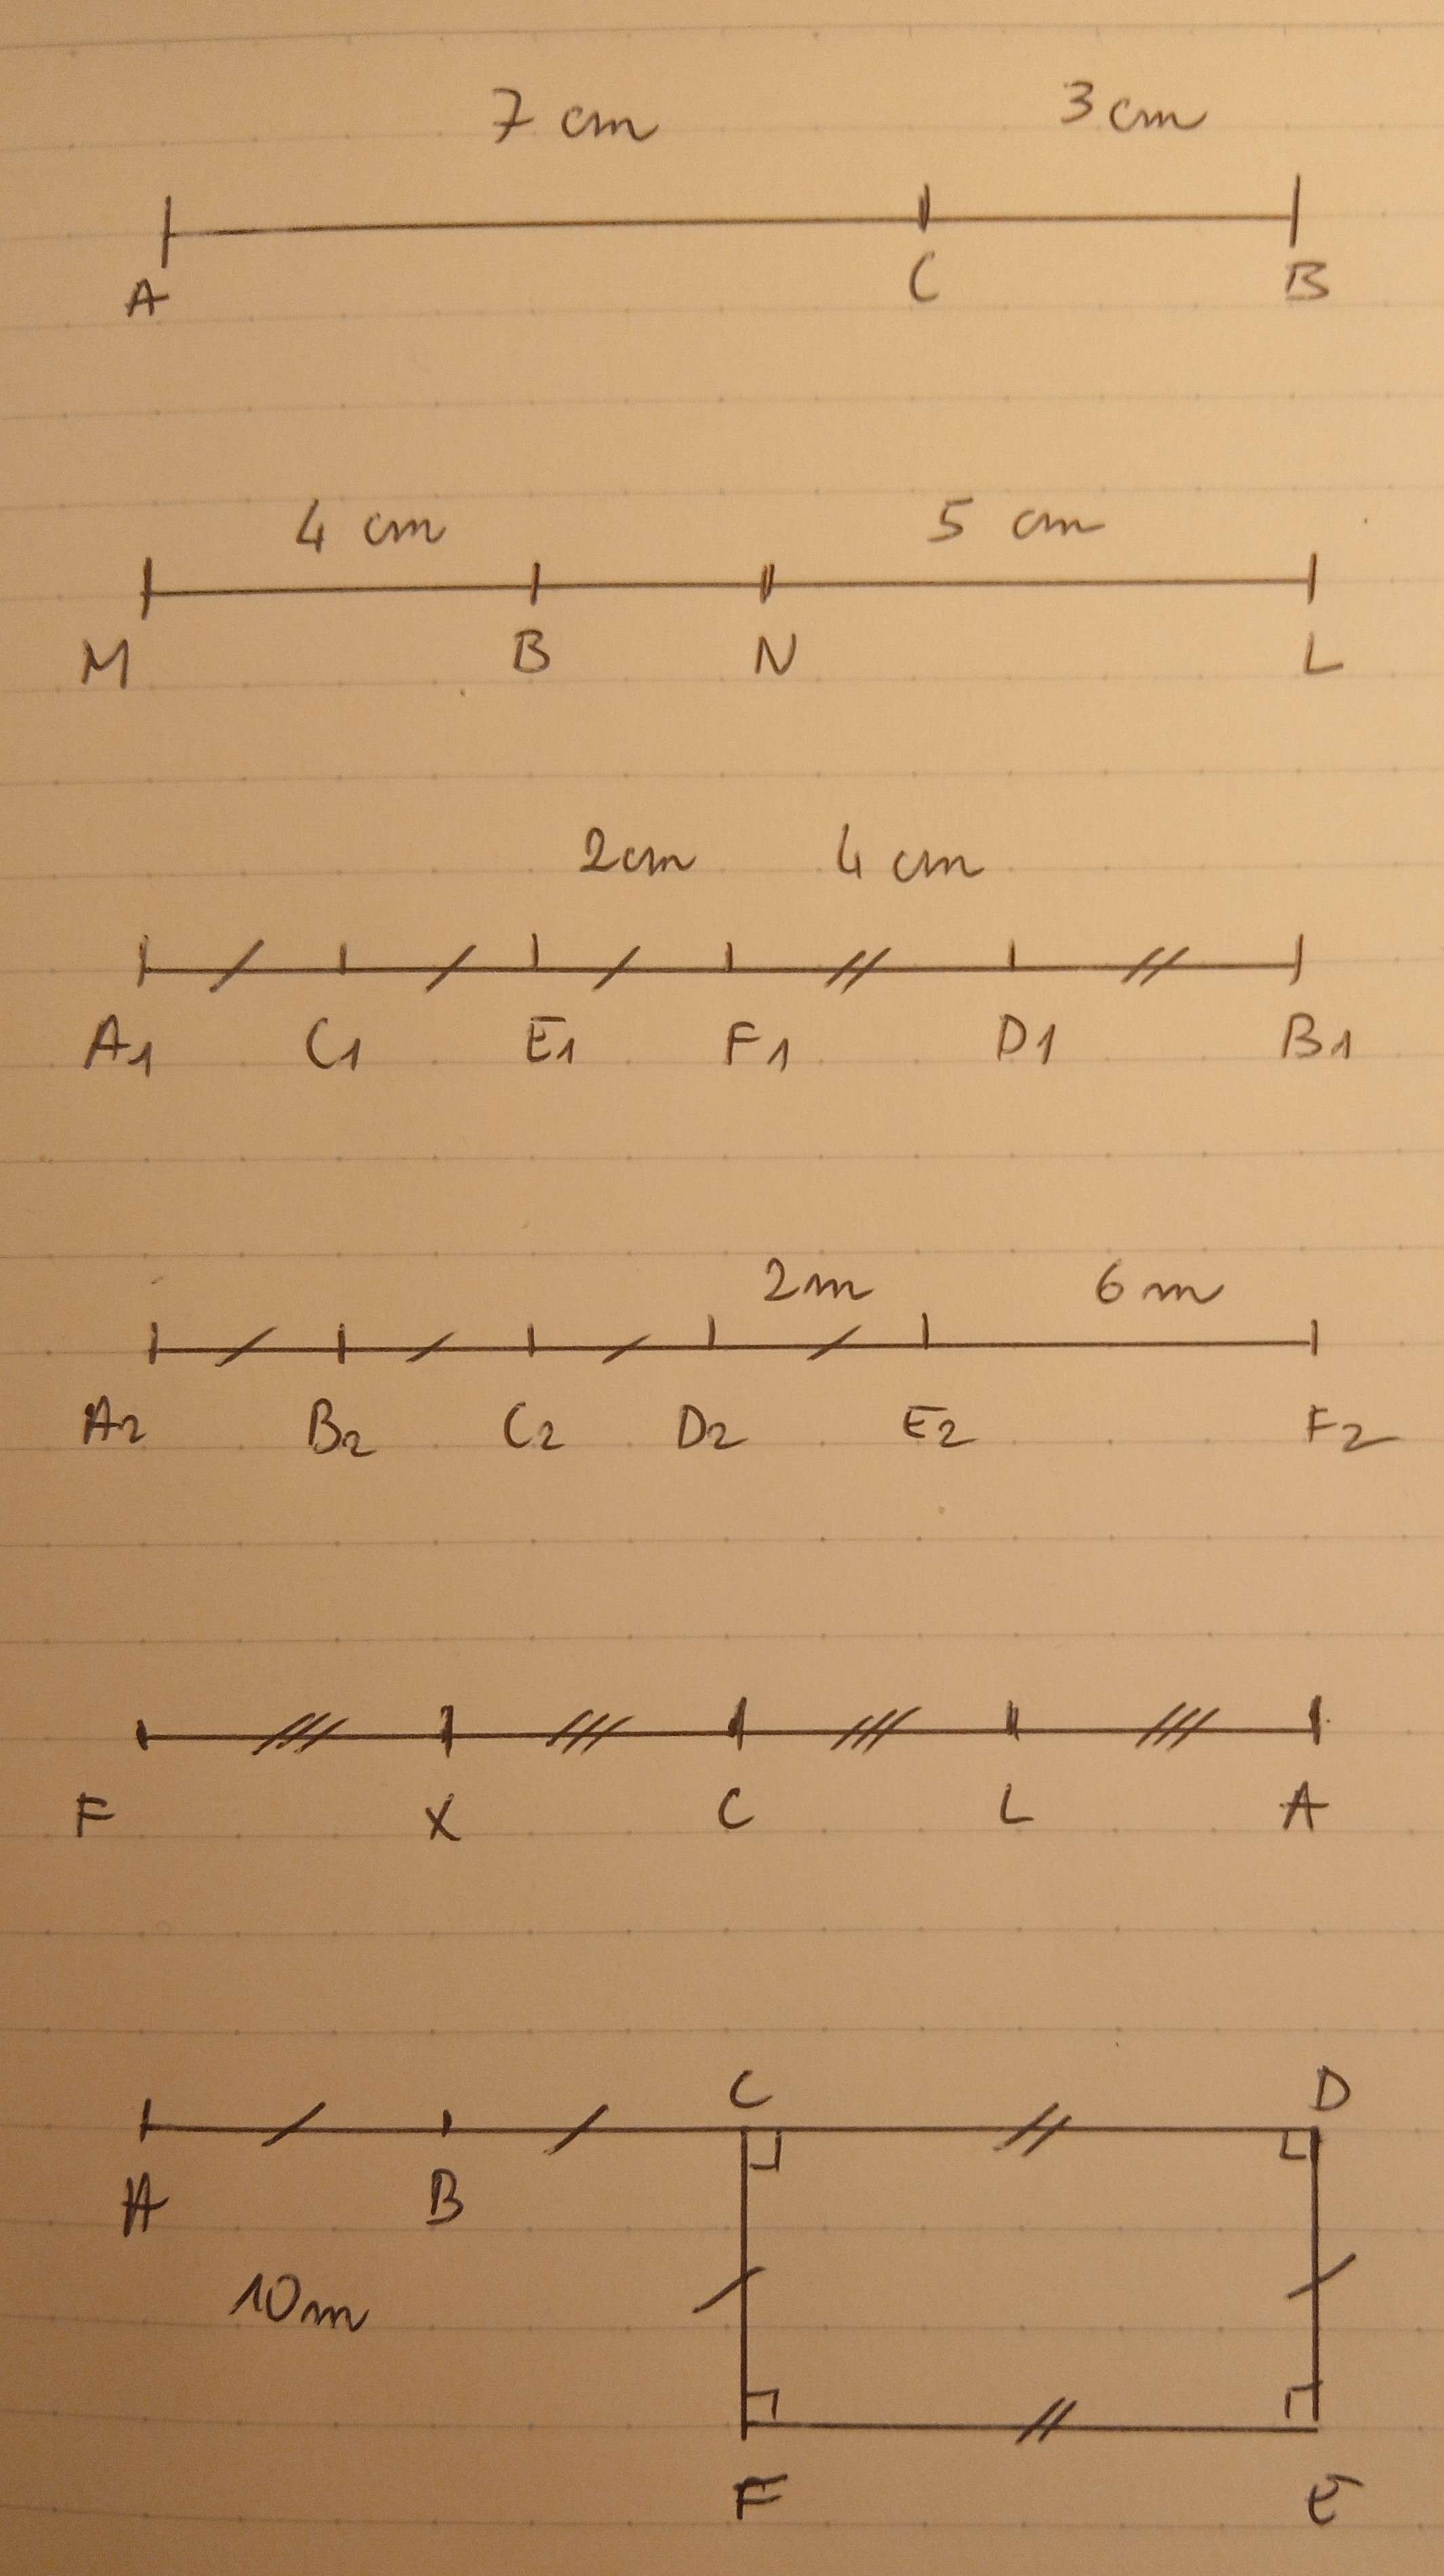 7 cm 3 cm
A C B
4 cm 5 cm
M B N L
2cm 4 cm
A1 C1 E1 F1 D1 B1
2m 6m
A2 B2 C2 D2 E2 F2
F X C L A
C D
A B
10m
F E